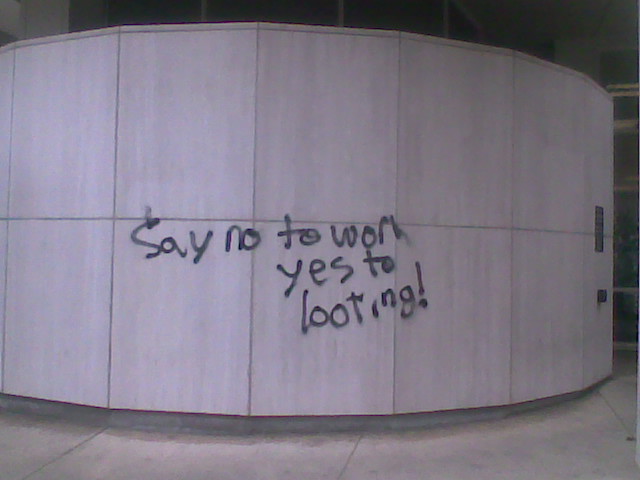 Say no to work
yes to
looting!